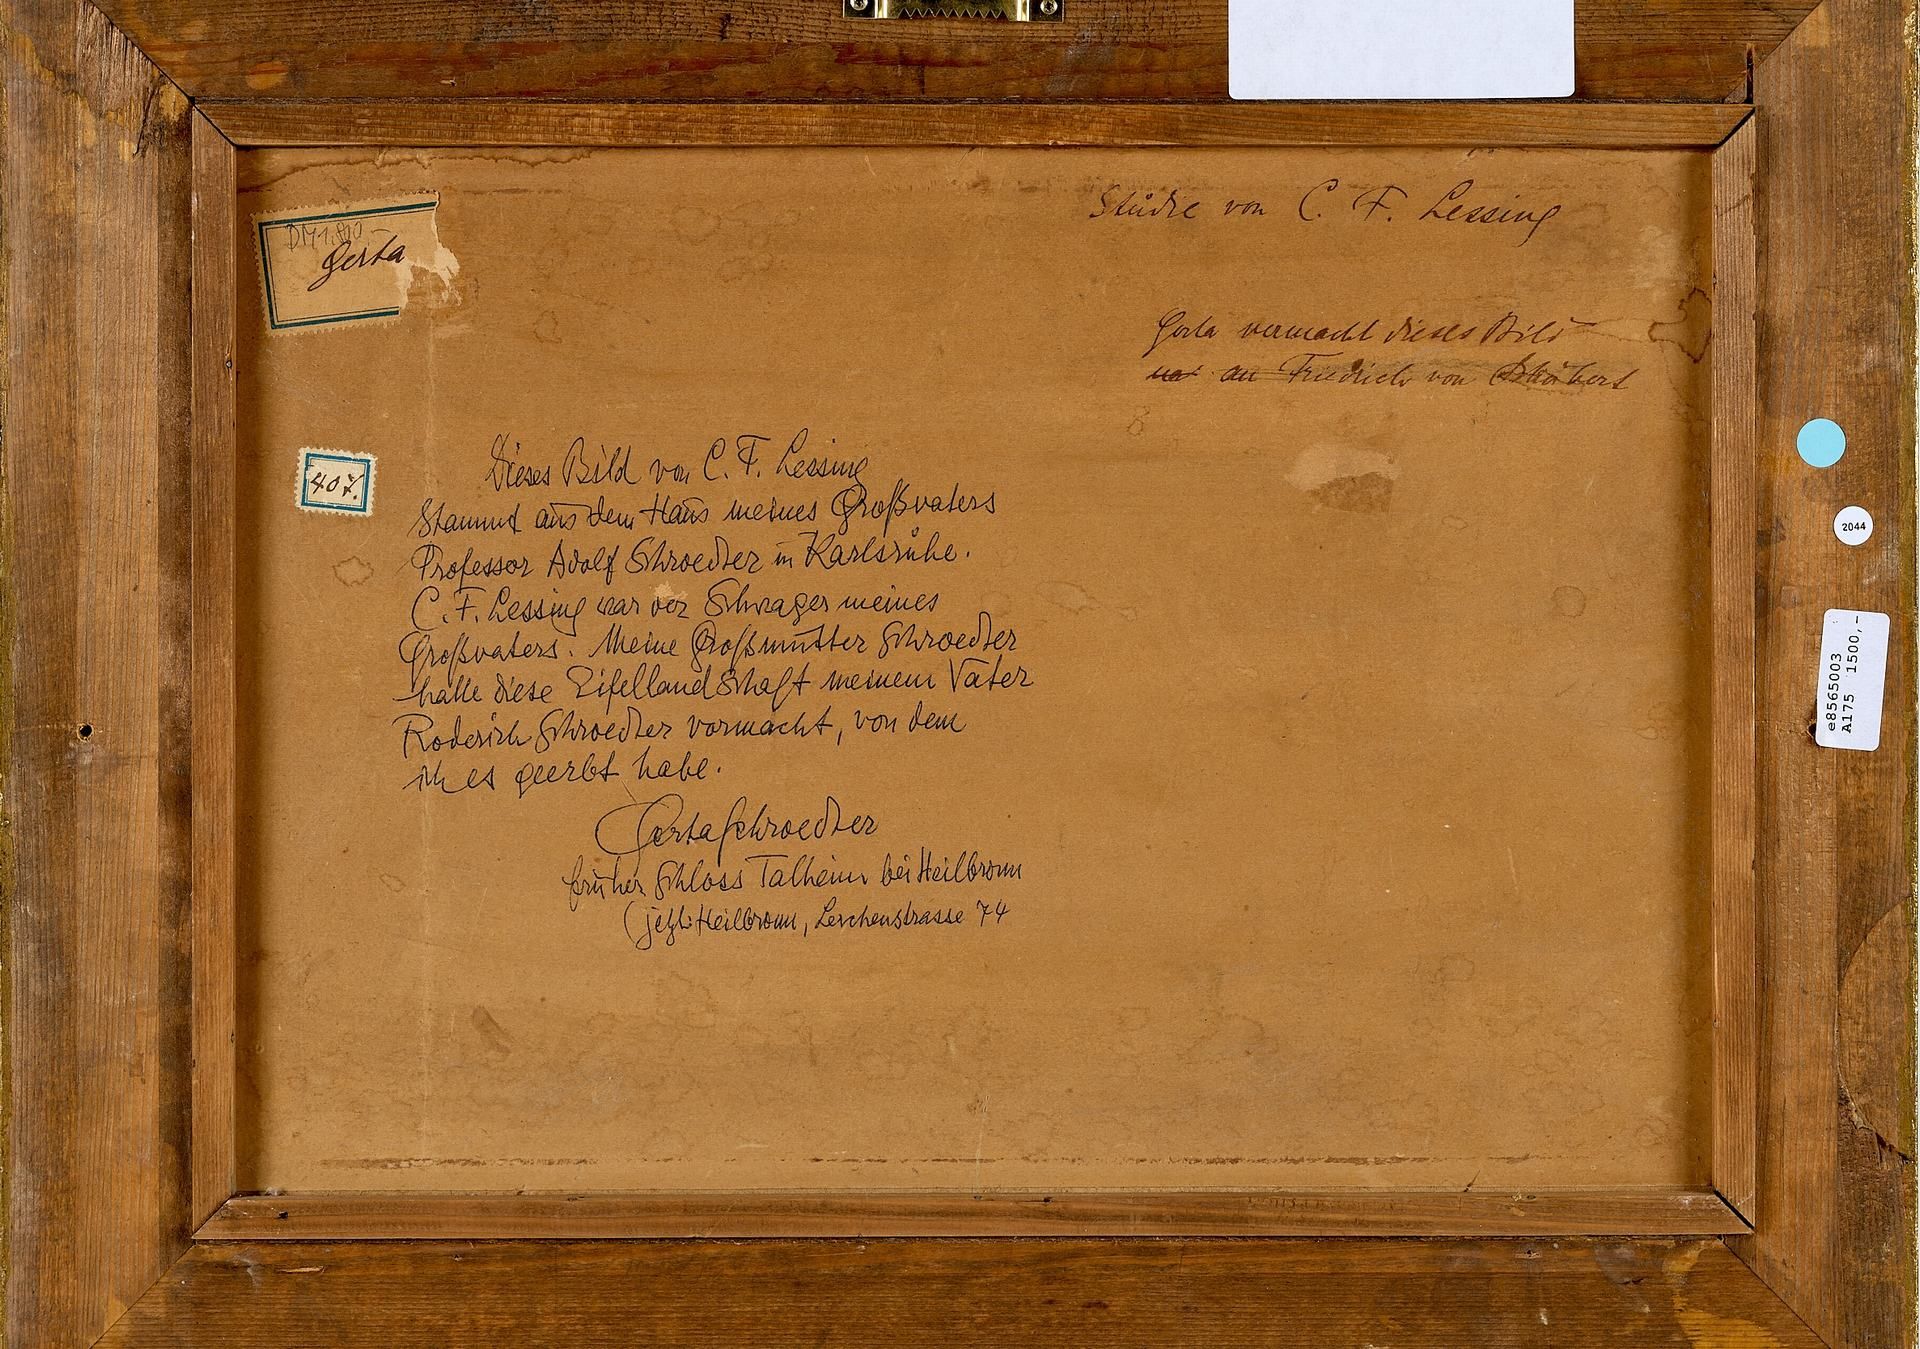 Studie von C. F. Lessing
Gerta
Gerta vermacht dieses Bild
an Friedrich von
Dieses Bild von C. F. Lessing
Stammt aus dem Haus meines Großvaters
Professor Adolf Schroedter in Karlsruhe.
C. F. Lessing war der Schwager meines
Großvaters. Meine Großmutter Schroedter
hatte diese Eifellandschaft meinem Vater
Roderich Schroedter vermacht, von dem
ich es geerbt habe.
Gerta Schroedter
früher Schloss Talheim bei Heilbronn
(jetzt: Heilbronn, Lerchenstrasse 74
407.
2044
e8565003
A175 1500,-